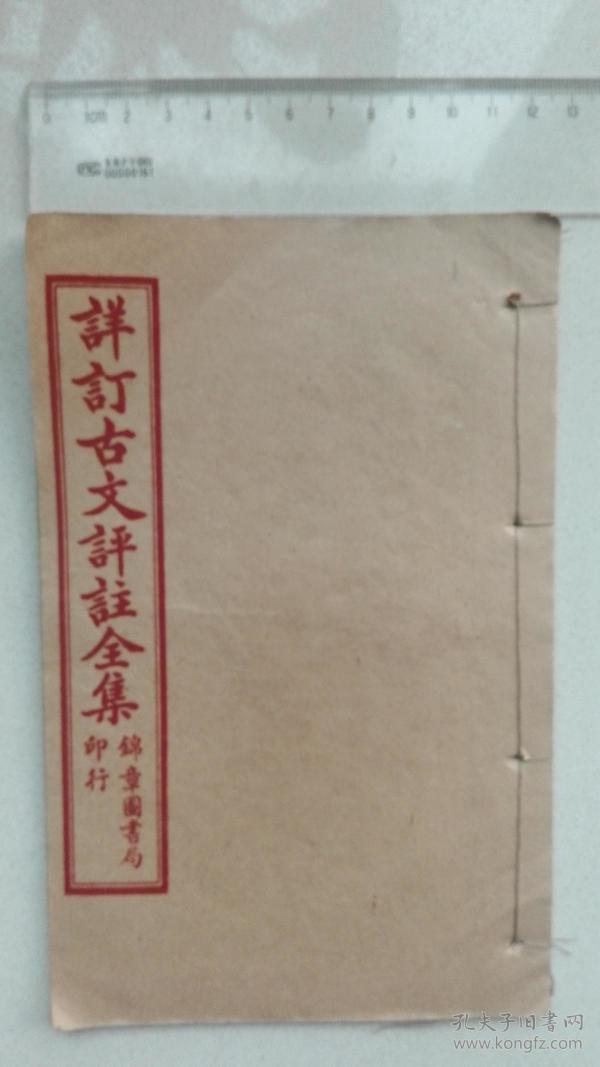 0 1cm 2 3 4 5 6 7 8 9 10 11 12 13
詳訂古文評註全集
錦章圖書局
印行
孔夫子旧書网
www.kongfz.com